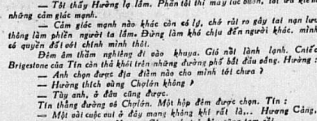 — Tôi thấy Hường lạ lắm. Phần tôi thì máy lúc buồn, tôi ưa kiếm
những cảm giác mạnh.
— Cảm giác mạnh nào khác còn có lý, chớ rủi ro gây tai nạn lưu
thông làm phiền người ta lắm. Đừng làm khó chịu đến người khác, mình
có quyền đối với chính mình thôi.
Đêm âm thầm nghiêng đi vào khuya. Gió nổi lành lạnh. Chiếc
Brigestone của Tín càn thả khói trên những đường phố bắt đầu vắng. Hường :
— Anh chọn được địa điểm nào cho mình tới chưa ?
— Hường thích vùng Chợlớn không ?
— Tùy anh, ở đâu cũng được.
Tín thẳng đường vô Chợlớn. Một hộp đêm được chọn. Tín :
— Một vài cuộc vui ở đây mang không khí rất lạ,.. Hương Cảng,